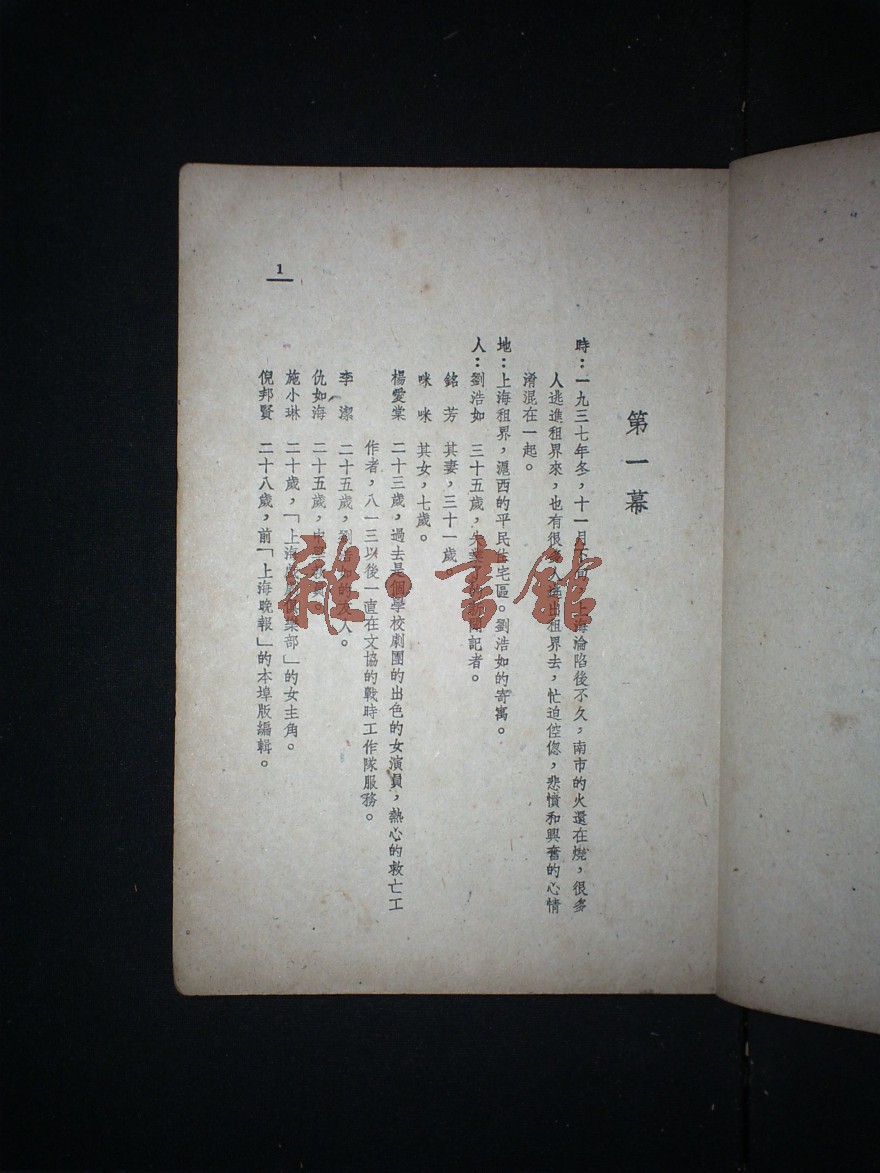 第一幕
時：一九三七年冬，十一月下旬，上海淪陷後不久，南市的火還在燒，很多
人逃進租界來，也有很多人逃出租界去，忙迫倥傯，悲憤和興奮的心情
淆混在一起。
地：上海租界，滬西的平民住宅區。劉浩如的寄寓。
人：劉浩如　三十五歲，失業的新聞記者。
銘　芳　其妻，三十一歲。
咪　咪　其女，七歲。
楊愛棠　二十三歲，過去是個學校劇團的出色的女演員，熱心的救亡工
作者，八一三以後一直在文協的戰時工作隊服務。
李　潔　二十五歲，劉浩如的友人。
仇如海　二十五歲，
施小琳　二十歲，「上海戲劇俱樂部」的女主角。
倪邦賢　二十八歲，前「上海晚報」的本埠版編輯。
1
雜·書館